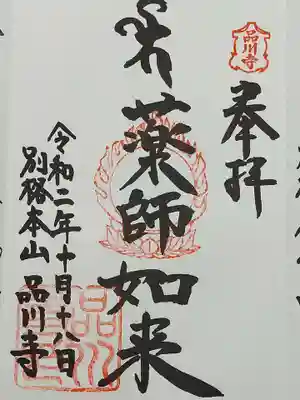 品川寺
奉拝
薬師如来
令和二年十月十八日
別格本山 品川寺
品川寺